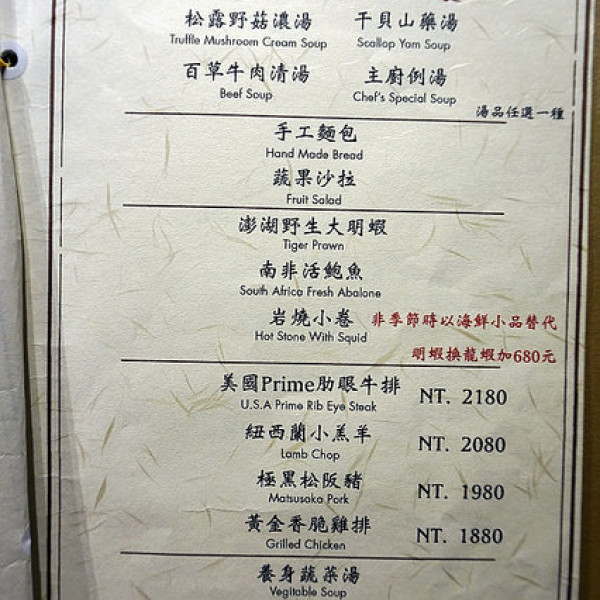 松露野菇濃湯 干貝山藥湯
Truffle Mushroom Cream Soup Scallop Yam Soup
百草牛肉清湯 主廚例湯
Beef Soup Chef's Special Soup
湯品任選一種
手工麵包
Hand Made Bread
蔬果沙拉
Fruit Salad
澎湖野生大明蝦
Tiger Prawn
南非活鮑魚
South Africa Fresh Abalone
岩燒小卷 非季節時以海鮮小品替代
Hot Stone With Squid
明蝦換龍蝦加680元
美國Prime肋眼牛排 NT. 2180
U.S.A Prime Rib Eye Steak
紐西蘭小羔羊 NT. 2080
Lamb Chop
極黑松阪豬 NT. 1980
Matsusaka Pork
黃金香脆雞排 NT. 1880
Grilled Chicken
養身蔬菜湯
Vegitable Soup